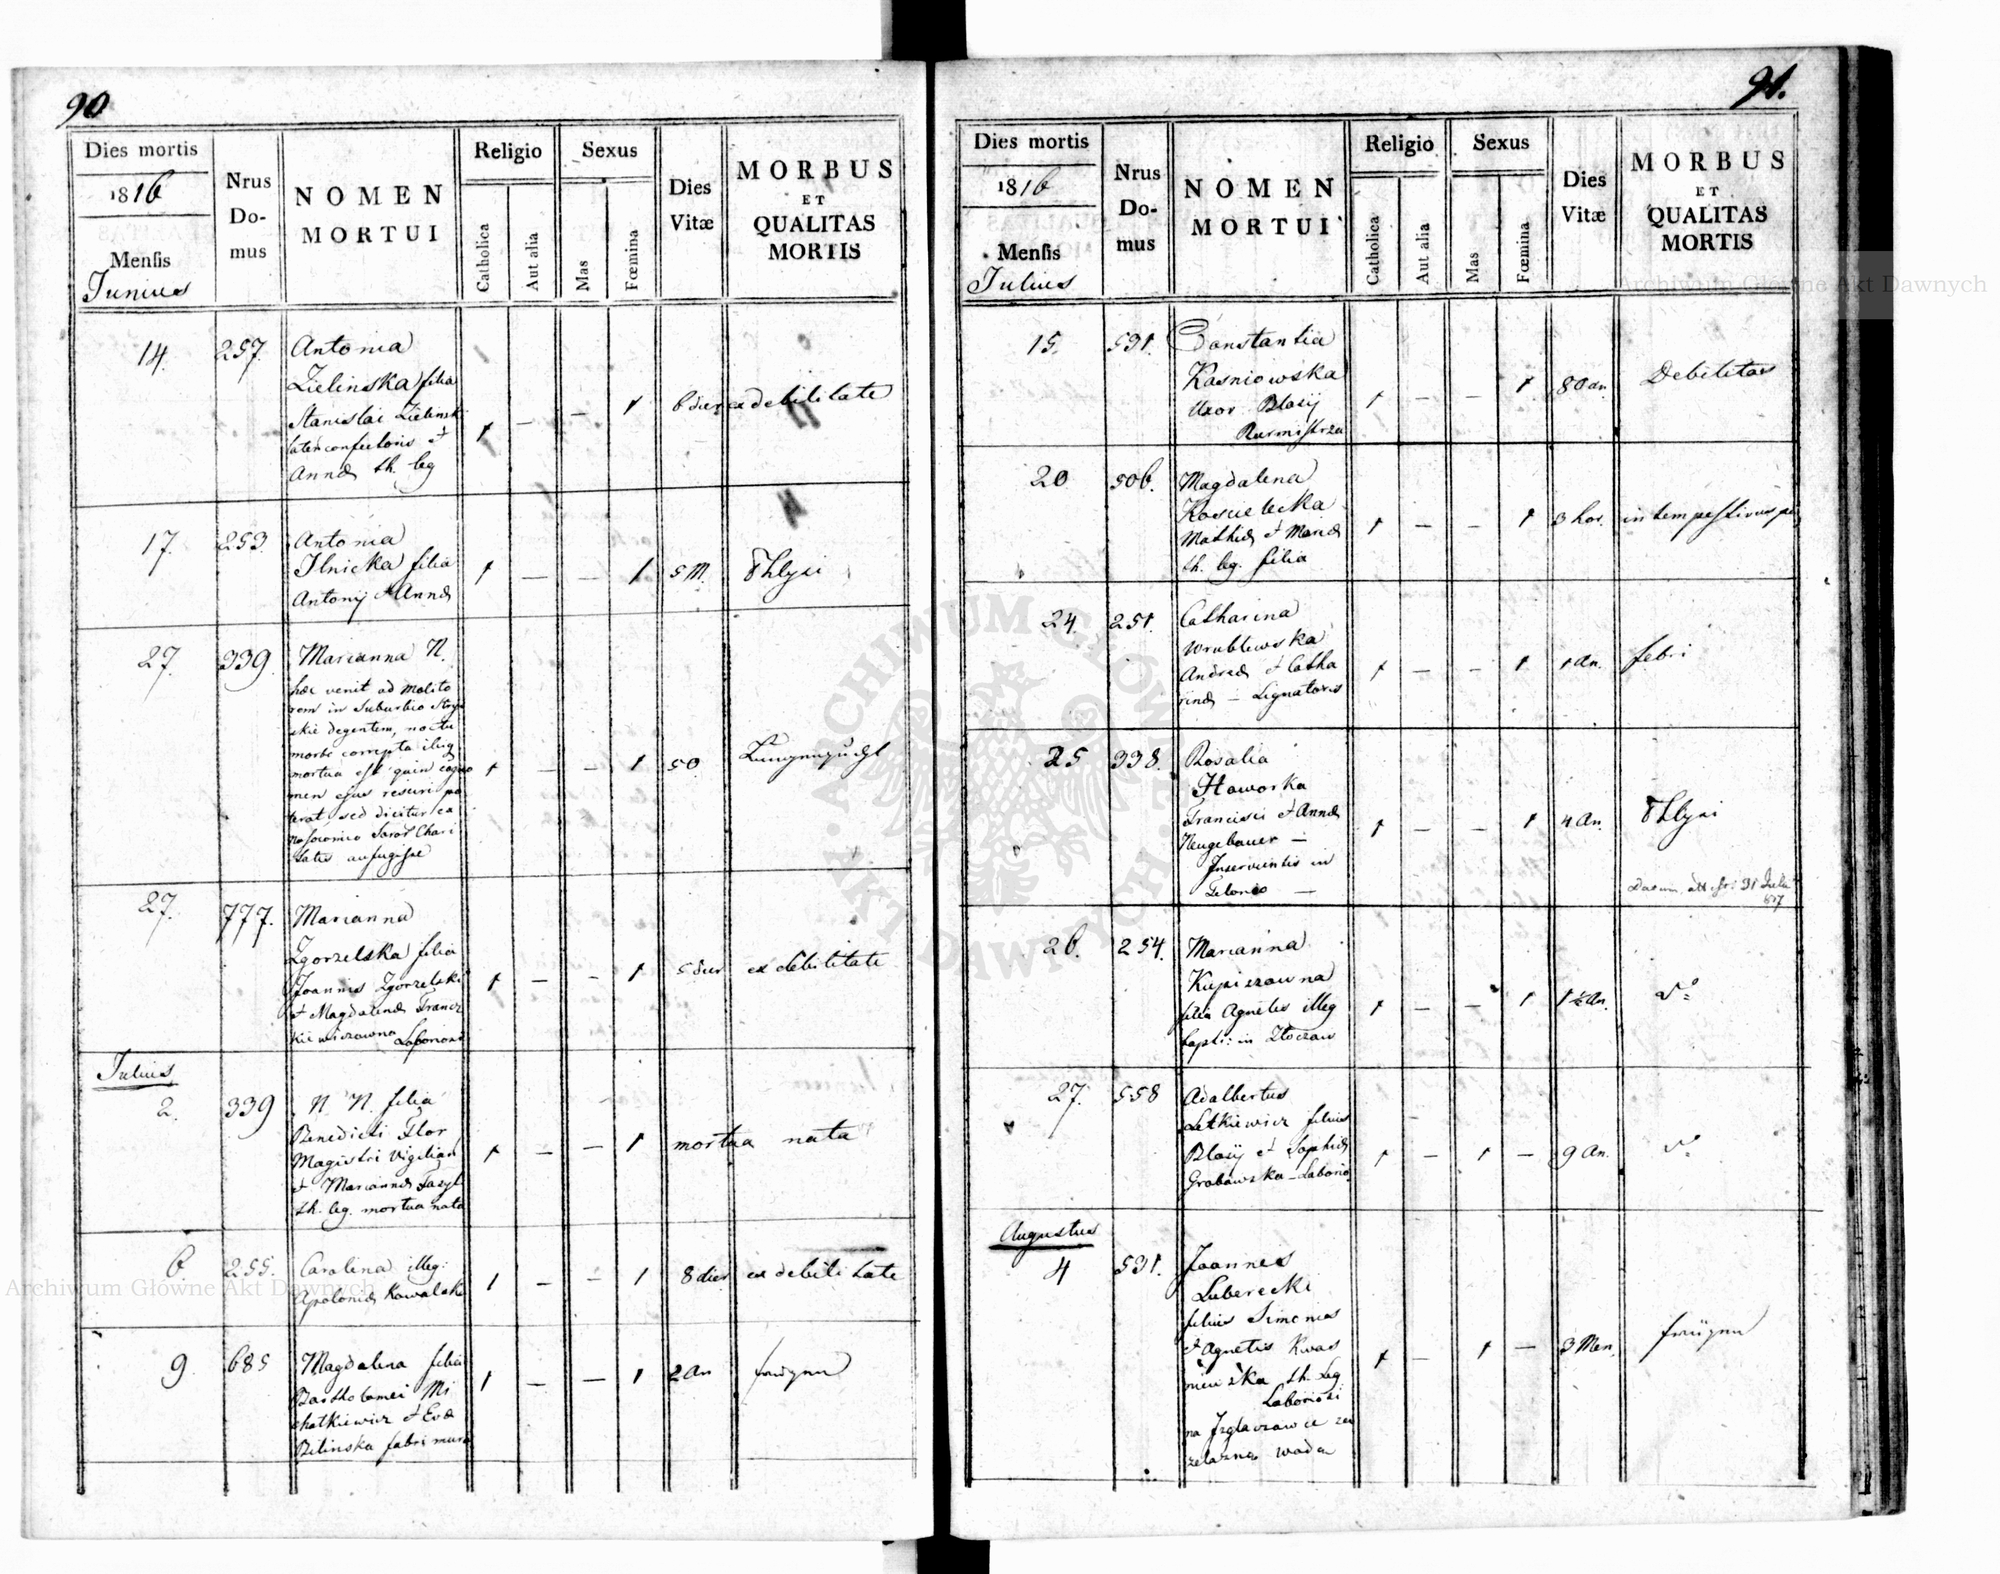 90
Dies mortis
1816
Mensis
Junius
Nrus
Do-
mus
NOMEN
MORTUI
Religio
Catholica
Aut alia
Sexus
Mas
Fœmina
Dies
Vitæ
MORBUS
ET
QUALITAS
MORTIS
14. 257. Antonia
Zielinska filia
Stanislai Zielinski
1 — — 1 6 dier ex debilitate
Annæ th. leg
17. 253. Antonia
Ilnicka filia 1 — — 1 5 M. Phtysi
Antonij et Annæ
27. 339. Marianna N.
hæc venit ad molito
rem in Suburbio Stryi
skie degentem, noctu
morbo correpta
mortua est quin cogno 1 — — 1 50.
men ejus resciri po
terat, sed dicitur ex
nosocomio Soror Chari
tatis aufugisse
27. 777. Marianna
Zgorzelska filia
Joannis Zgorzelski 1 — — 1 5 dier ex debilitate
et Magdalenæ Francz
kiewiczowna Laboriosi
Julius
2. 339 N. N. filia
Benedicti Flor
Magistri Vigiliar 1 — — 1 mortua nata
et Mariannæ
th. leg. mortua nata
6 255. Carolina illeg:
Apoloniæ Kowalska 1 — — 1 8 dier ex debilitate
9 685 Magdalena filia
Bartholomei Mi 1 — — 1 2 An
chatkiewicz et Evæ
Bilinska fabri mura
91.
Dies mortis
1816
Mensis
Julius
Nrus
Do-
mus
NOMEN
MORTUI
Religio
Catholica
Aut alia
Sexus
Mas
Fœmina
Dies
Vitæ
MORBUS
ET
QUALITAS
MORTIS
15. 531. Constantia
Kasniowska
Uxor Blasij 1 — — 1 80 an. Debilitas
Rurmistrza
20 506. Magdalena
Koscielecka
Mathiæ et Mariæ 1 — — 1 3 hor. intempestivus
th. leg. filia
24. 251. Catharina
Wrublewska
Andreæ et Catha 1 — — 1 1 An. febri
rinæ — Lignatoris
25 338. Rosalia
Haworka
Francisci et Annæ 1 — — 1 4 An. Phtysi
Neugebauer —
Inservientis in
Telonio —
26. 254. Marianna
Kupiszowna
filia Agnetis illeg 1 — — 1 1 ½ An. do
bapti: in Złoczow
27. 558 Adalbertus
Letkiewicz filius
Blasij et Sophiæ 1 — 1 — 9 An. do
Grabowska — Laborio
Augustus
4 531. Joannes
Luberecki
filius Simonis
et Agnetis Kwas 1 — 1 — 3 Men.
niewska th. Leg
Laboriosi
zelazna woda
Archiwum Główne Akt Dawnych
Archiwum Główne Akt Dawnych
ARCHIWUM GŁÓWNE
AKT DAWNYCH